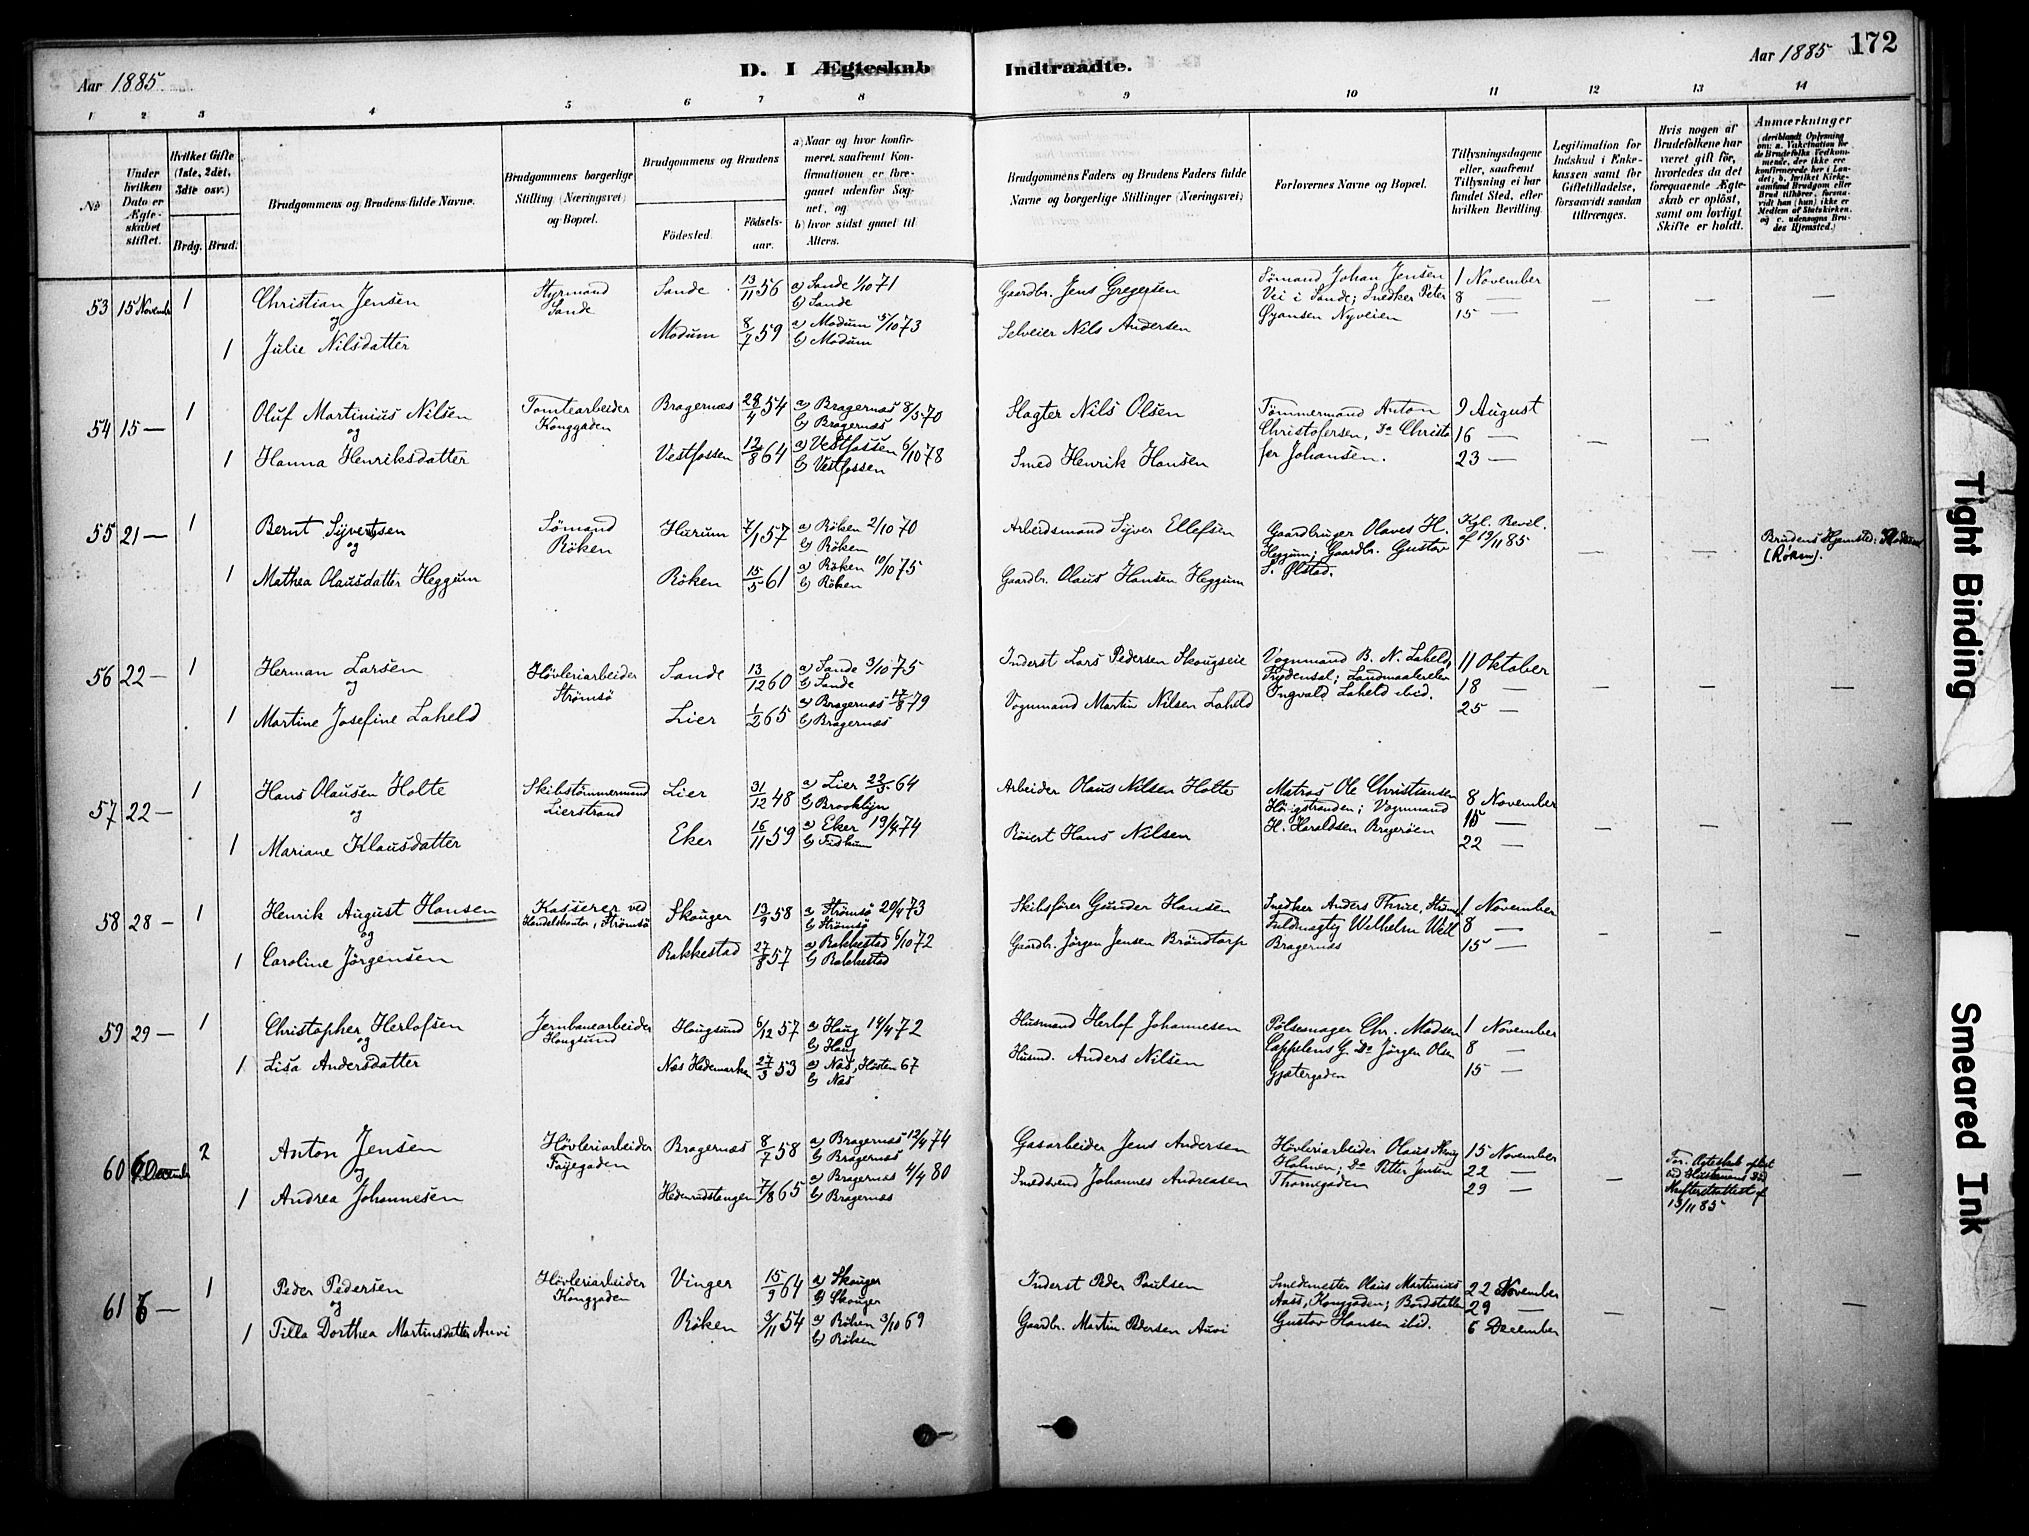 Aar 1885.
D. I Ægteskab Indtraadte.
Aar 1885 172
1 2 3 4 5 6 7 8 9 10 11 12 13 14
No
Under hvilken Dato er Ægteskabet stiftet.
Hvilket Gifte (1ste, 2det, 3die osv.)
Brdg. Brud.
Brudgommens og Brudens fulde Navne.
Brudgommens borgerlige Stilling (Næringsvei) og Bopæl.
Brudgommens og Brudens
Fødested.
Fødselsaar.
a) Naar og hvor konfirmeret, saafremt Konfirmationen er foregaaet udenfor Sognet, og
b) hvor sidst gaaet til Alters.
Brudgommens Faders og Brudens Faders fulde Navne og borgerlige Stillinger (Næringsvei)
Forlovernes Navne og Bopæl.
Tillysningsdagene eller, saafremt Tillysning ei har fundet Sted, efter hvilken Bevilling.
Legitimation for Indskud i Enkekassen samt for Giftetilladelse, forsaavidt saadan tiltrænges.
Hvis nogen af Brudefolkene har været gift før, hvorledes da det foregaaende Ægteskab er opløst, samt om lovligt Skifte er holdt.
Anmærkninger
53 15 Novembr 1
Christian Jensen
og
1 Julie Nilsdatter
Styrmand
Sande
Sande 13/11 56
Modum 8/7 59
a) Sande 1/10 71
b) Sande
a) Modum 5/10 73
b) Modum
Gaardbr. Jens Gregersen
Selveier Nils Andersen
Sømand Johan Jensen
Vei i Sande; Snedker Peter
Nyveien
1 November
8 —
15 —
54 15 — 1
Oluf Martinius Nilsen
og
1 Hanna Henriksdatter
Tomtearbeider
Konggaden
Bragernæs 28/4 54
Vestfossen 12/8 64
a) Bragernæs 8/5 70
b) Bragernæs
a) Vestfossen 6/10 78
b) Vestfossen
Slagter Nils Olsen
Smed Henrik Hansen
Tømmermand Anton
Christofersen, Do Christo
fer Johansen.
9 August
16 —
23 —
55 21 — 1
Bernt Syvertsen
og
1 Mathea Olausdatter Heggum
Sømand
Röken
Hurum 7/1 57
Röken 15/5 61
a) Röken 2/10 70
b) Röken
a) Röken 10/10 75
b) Röken
Arbeidsmand Syver Ellefsen
Gaardbr. Olaus Hansen Heggum
Gaardbruger Olaves H.
Heggum; Gaardbr. Gustav
S. Ølstad.
Kgl. Bevil.
af 19/11 85
Brudens Hjemsted:
(Röken)
56 22 — 1
Herman Larsen
og
1 Martine Josefine Laheld
Hövleriarbeider
Strömsö
Sande 13/12 60
Lier 1/2 65
a) Sande 3/10 75
b) Sande
a) Bragernæs 17/8 79
b) Bragernæs
Inderst Lars Pedersen Skougseie
Vognmand Martin Nilsen Laheld
Vognmand B. N. Laheld,
Frydensal; Landmaalerelev
Ingvald Laheld ibid.
11 Oktober
18 —
25 —
57 22 — 1
Hans Olausen Holte
og
1 Mariane Klausdatter
Skibstömmermand
Lierstrand
Lier 31/12 48
Eker 16/11 59
a) Lier 22/5 64
b) Brooklyn
a) Eker 19/4 74
b)
Arbeider Olaus Nilsen Holte
Röiert Hans Nilsen
Matros Ole Christiansen
Vognmand
H. Haraldsen Brygerøen
8 November
15 —
22 —
58 28 — 1
Henrik August Hansen
og
1 Caroline Jörgensen
Kasserer ved
Handelskontor, Strömsö
Skouger 13/9 58
Rakkestad 27/8 57
a) Strömsö 20/4 73
b) Strömsö
a) Rakkestad 6/10 72
b) Rakkestad
Skibsförer Gunder Hansen
Gaardbr. Jörgen Jensen Bröndtorp
Snedker Anders Thrue, Ströms
Fuldmægtig Wilhelm Will
Bragernæs
1 November
8 —
15 —
59 29 — 1
Christopher Herlofsen
og
1 Lisa Andersdatter
Jernbanearbeider
Hougsund
Hougsund 6/12 57
Næs Hedemarken 27/3 53
a) Haug 14/4 72
b) Haug
a) Næs, Hösten 67
b) Næs
Husmand Herlof Johannesen
Husmd. Anders Nilsen
Pölsemager Chr. Madsen
Cappelens G. Do Jörgen Olsen
Gjætergaden
1 November
8 —
15 —
60 6 Decembr 2
Anton Jensen
og
1 Andrea Johannesen
Hövleriarbeider
Tøiegaden
Bragernæs 8/7 58
Hedenrudstangen 7/8 65
a) Bragernæs 12/4 74
b) Bragernæs
a) Bragernæs 4/4 80
b) Bragernæs
Gasarbeider Jens Andersen
Smedsvend Johannes Andreasen
Hövleriarbeider Olaus
Holmen; Do Petter Jensen
Thornegaden
15 November
22 —
29 —
For. Ægteskab oplöst
ved Hustruens Död
Skifteretsattest af
13/11 85
61 6 — 1
Peder Pedersen
og
1 Tilla Dorthea Martinsdatter Auvi
Hövleriarbeider
Konggaden
Vinger 15/9 64
Röken 3/11 54
a) Skouger
b) Skouger
a) Röken 3/10 69
b) Röken
Inderst Peder Paulsen
Gaardbr. Martin Pedersen Auvi
Smedemester Olaus Martinius
Aass, Konggaden; Bordstabler
Gustav Hansen ibid.
22 November
29 —
6 December
Tight Binding
Smeared Ink